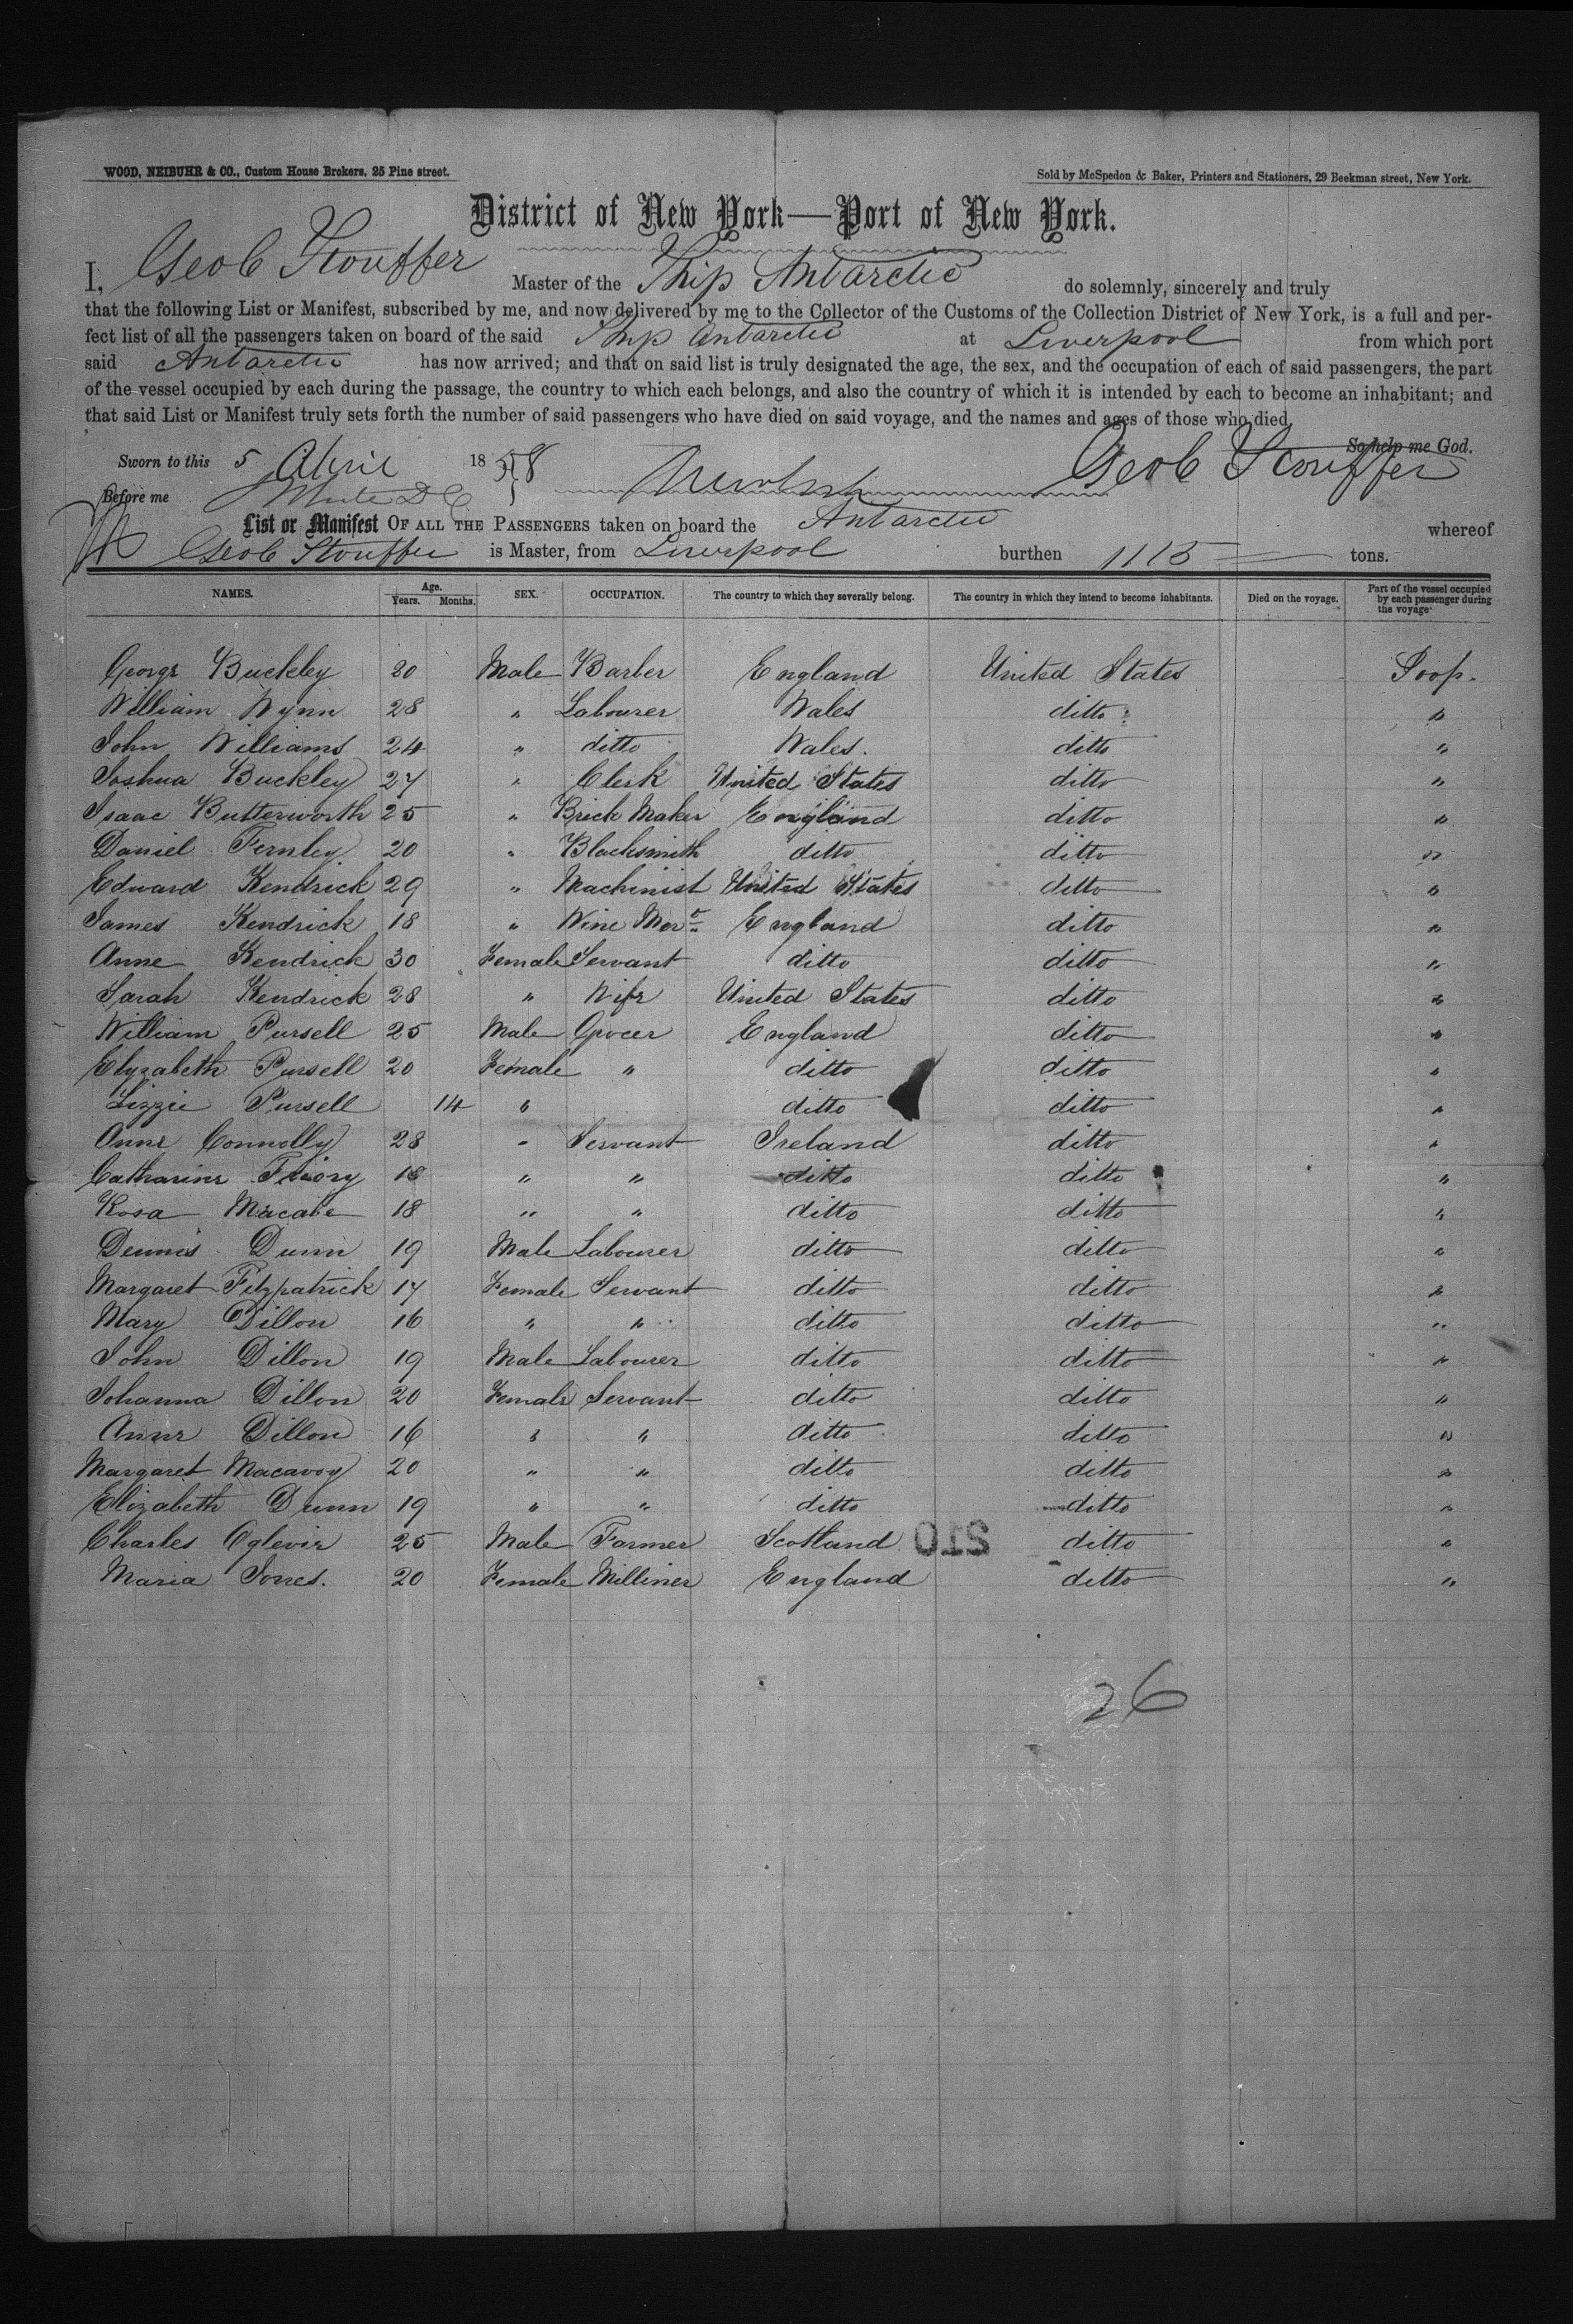 WOOD, NEIBUHR & CO., Custom House Brokers, 25 Pine street.
Sold by McSpedon & Baker, Printers and Stationers, 29 Beekman street, New York.
District of New York—Port of New York.
I, Geo C Stouffer Master of the Ship Antarctic do solemnly, sincerely and truly
that the following List or Manifest, subscribed by me, and now delivered by me to the Collector of the Customs of the Collection District of New York, is a full and per-
fect list of all the passengers taken on board of the said Ship Antarctic at Liverpool from which port
said Antarctic has now arrived; and that on said list is truly designated the age, the sex, and the occupation of each of said passengers, the part
of the vessel occupied by each during the passage, the country to which each belongs, and also the country of which it is intended by each to become an inhabitant; and
that said List or Manifest truly sets forth the number of said passengers who have died on said voyage, and the names and ages of those who died.
So help me God.
Sworn to this 5 April 1858 Geo C Stouffer
Before me
List or Manifest OF ALL THE PASSENGERS taken on board the Antarctic whereof
Geo C Stouffer is Master, from Liverpool burthen 1115 tons.
NAMES. Age. Years. Months. SEX. OCCUPATION. The country to which they severally belong. The country in which they intend to become inhabitants. Died on the voyage. Part of the vessel occupied by each passenger during the voyage.
George Buckley 20 Male Barber England United States Poop.
William Wynn 28 " Labourer Wales ditto "
John Williams 24 " ditto Wales. ditto "
Joshua Buckley 27 " Clerk United States ditto "
Isaac Butterworth 25 " Brick Maker England ditto "
Daniel Fernley 20 " Blacksmith ditto ditto "
Edward Kendrick 29 " Machinist United States ditto "
James Kendrick 18 " Wine Mert England ditto "
Anne Kendrick 30 Female Servant ditto ditto "
Sarah Kendrick 28 " Wife United States ditto "
William Pursell 25 Male Grocer England ditto "
Elyzabeth Pursell 20 Female " ditto ditto "
Lizzie Pursell 14 " ditto ditto "
Anne Connolly 28 " Servant Ireland ditto "
Catharine Friory 18 " " ditto ditto "
Rosa Macabe 18 " " ditto ditto "
Dennis Dunn 19 Male Labourer ditto ditto "
Margaret Fitzpatrick 17 Female Servant ditto ditto "
Mary Dillon 16 " " ditto ditto "
John Dillon 19 Male Labourer ditto ditto "
Johanna Dillon 20 Female Servant ditto ditto "
Anne Dillon 16 " " ditto ditto "
Margaret Macavoy 20 " " ditto ditto "
Elizabeth Dunn 19 " " ditto ditto "
Charles Oglevie 25 Male Farmer Scotland ditto "
Maria Jones. 20 Female Milliner England ditto "
26